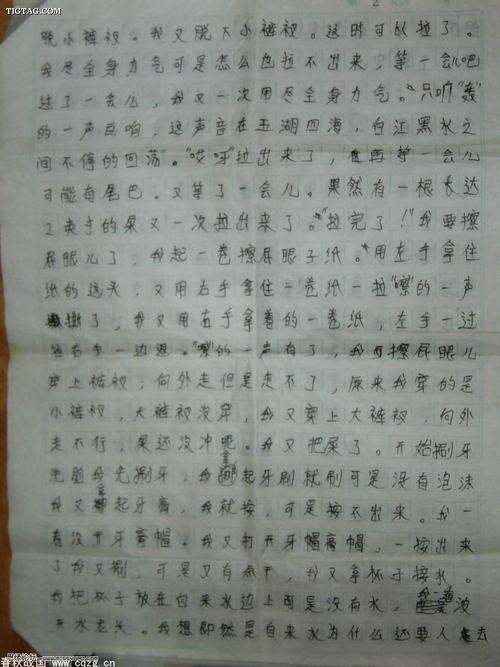 TIGTAG.COM
2
脱小裤衩。我又脱大小裤衩。这时可以拉了。
我尽全身力气可是怎么也拉不出来，等一会儿吧
过了一会儿，我又一次用尽全身力气。只听"轰"
的一声巨响，这声音在五湖四海，白江黑水之
间不停的回荡。"哎呀"拉出来了，在再等一会儿
可能有尾巴。又等了一会儿。果然有一根长达
2束于的屎又一次拉出来了。"拉完了！"我要擦
屁眼儿了，我起一卷擦屁眼子纸。用左手拿住
纸的这头，又用右手拿住一卷纸一拉"嚓"的一声
撕了，我又用右手拿着的一卷纸，左手一过
右手一边退。"嚓"的一声有了，我可擦屁眼儿
穿上裤衩，向外走但是走不了，原来我穿的是
小裤衩，大裤衩没穿，我又穿上大裤衩，向外
走不行，屎还没冲吧。我又把屎了。开始刷牙
洗脸我先刷牙，我拿起牙刷就刷可是没有泡沫
我又拿起牙膏，我就按，可是按不出来。我一
看没开牙膏帽。我又打开牙帽膏帽，一按出来
了我又刷，可是又有点干，我又拿杯子接水。
我把杯子放在自来水边上可是没有水，我一看没
开水龙头。我想即然是自来水为什么还要人去
春秋战国 www.cqzg.cn